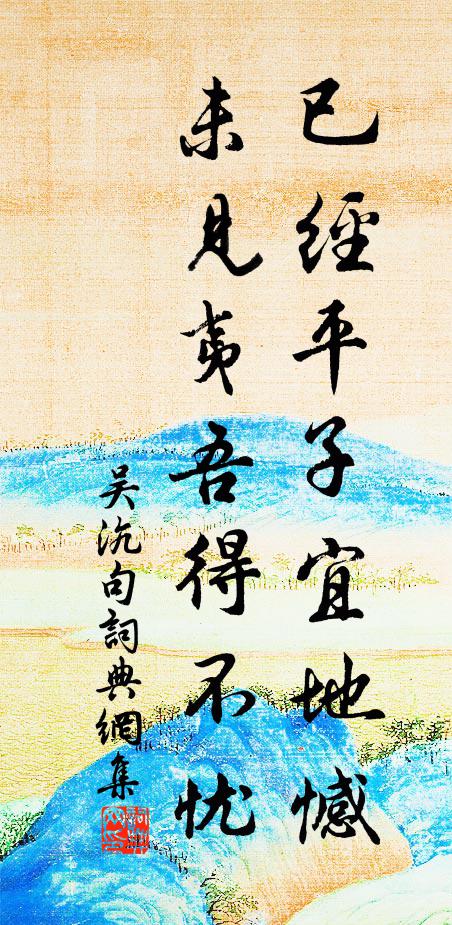 已經平子宜地憾
未見夷吾得不忧
吴沆句詞典網集